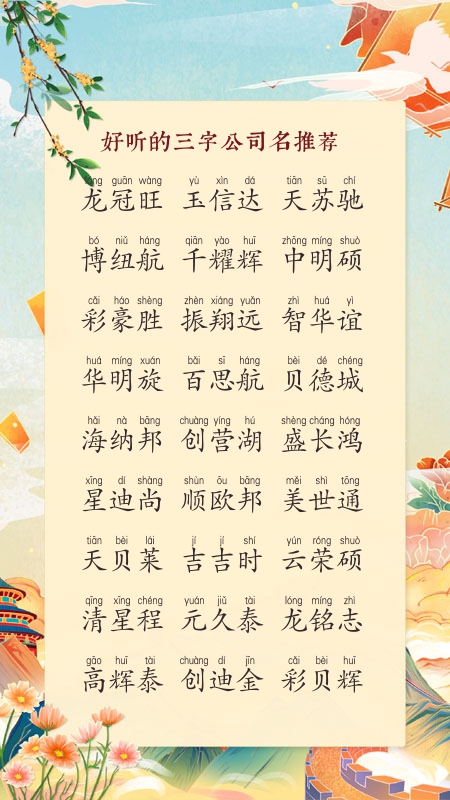 好听的三字公司名推荐
lóng guān wàng yù xìn dá tiān sū chí
龙冠旺 玉信达 天苏驰
bó niǔ háng qiān yào huī zhōng míng shuò
博纽航 千耀辉 中明硕
cǎi háo shèng zhèn xiáng yuǎn zhì huá yì
彩豪胜 振翔远 智华谊
huá míng xuán bǎi sī háng bèi dé chéng
华明旋 百思航 贝德城
hǎi nà bāng chuàng yíng hú shèng cháng hóng
海纳邦 创营湖 盛长鸿
xīng dí shàng shùn ōu bāng měi shì tōng
星迪尚 顺欧邦 美世通
tiān bèi lái jí jí shí yún róng shuò
天贝莱 吉吉时 云荣硕
qīng xīng chéng yuán jiǔ tài lóng míng zhì
清星程 元久泰 龙铭志
gāo huī tài chuàng dí jīn cǎi bèi huī
高辉泰 创迪金 彩贝辉